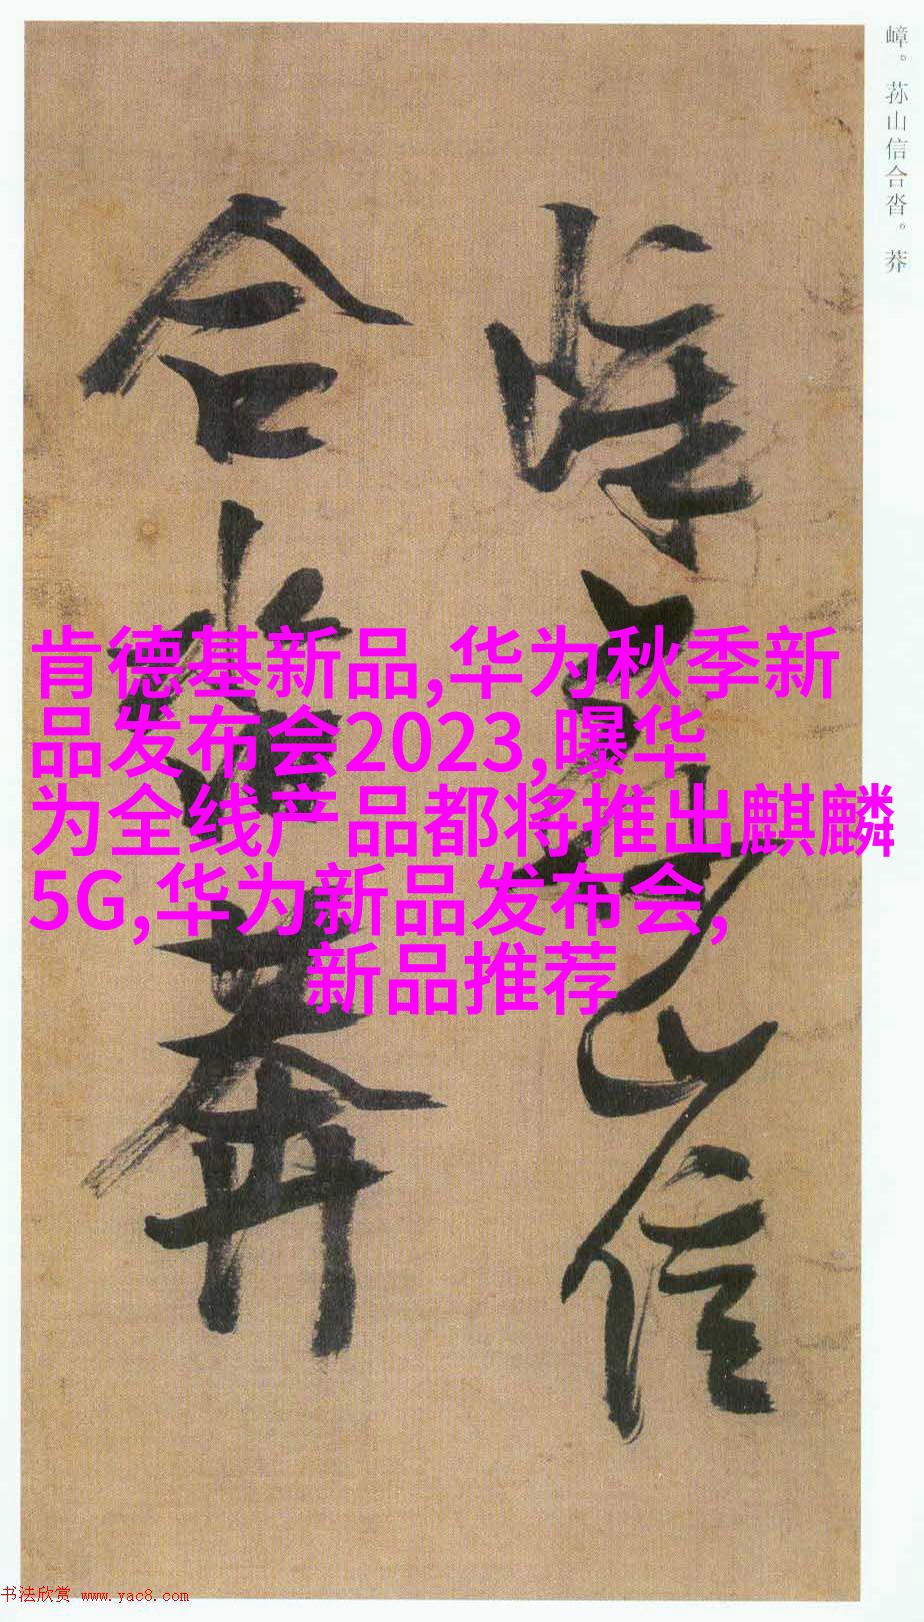 嶂。荪山信合沓。莽
嶂荪山信
合沓莽
肯德基新品,华为秋季新
品发布会2023,曝华
为全线产品都将推出麒麟
5G,华为新品发布会,
新品推荐
书法欣赏 www.yac8.com